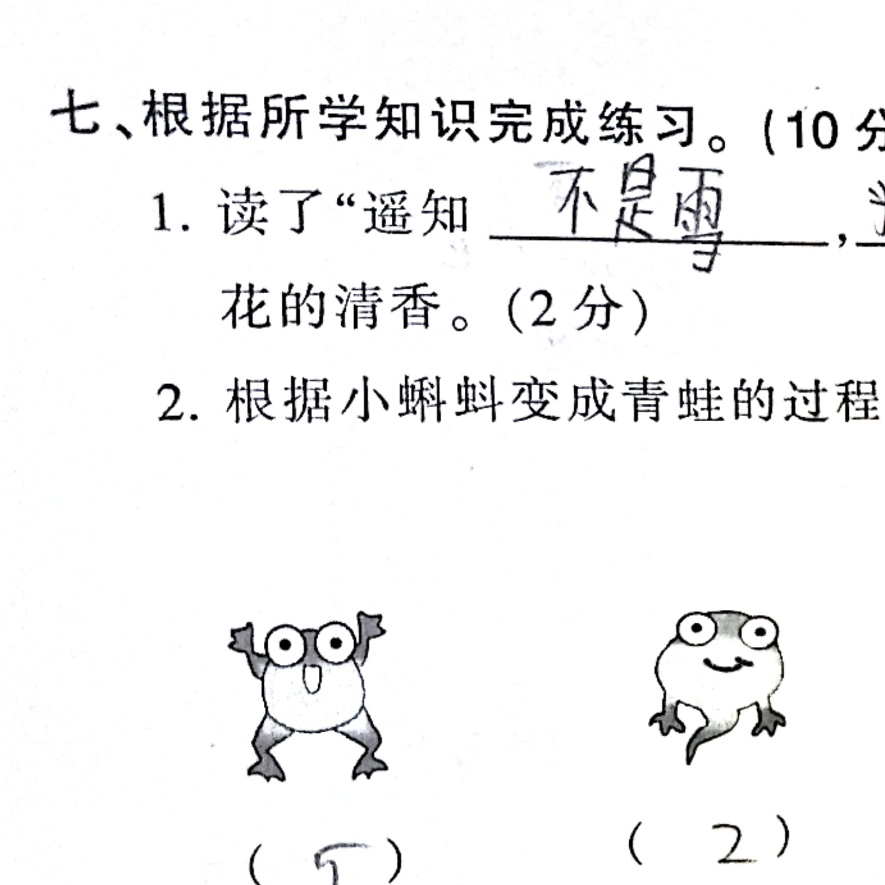 七、根据所学知识完成练习。(10 分
1. 读了“遥知 不是雪 ,
花的清香。(2 分)
2. 根据小蝌蚪变成青蛙的过程
( 5 ) ( 2 )